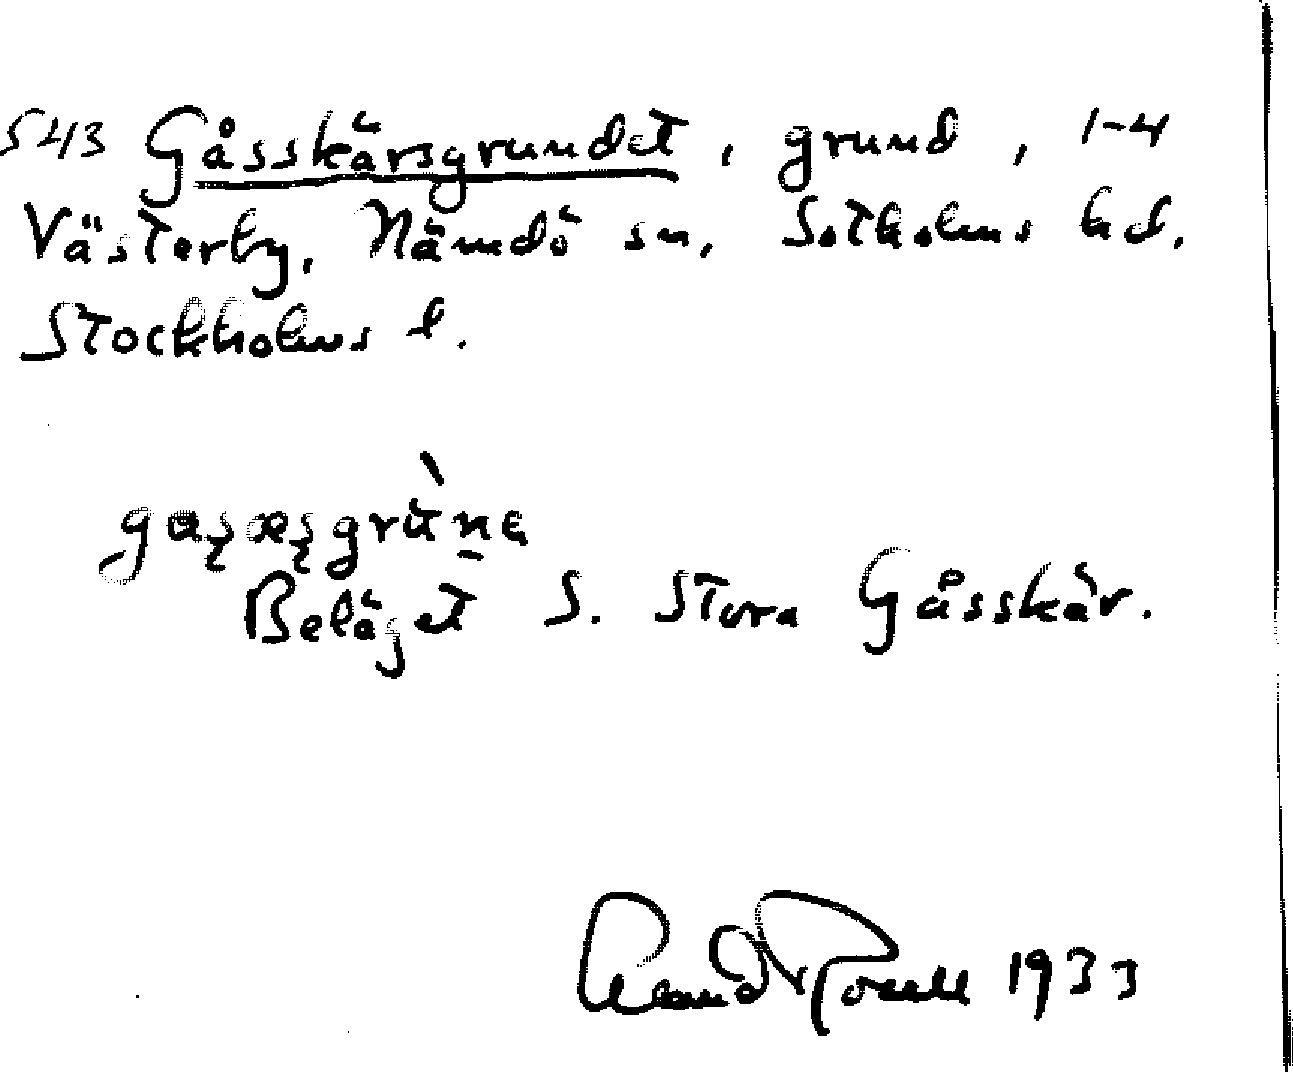 543 Gåsskärsgrundet, grund, 1-4
Västerby, Nämdö sn, Sotholms hd.
Stockholms l.
Beläget S. Stora Gåsskär.
1933